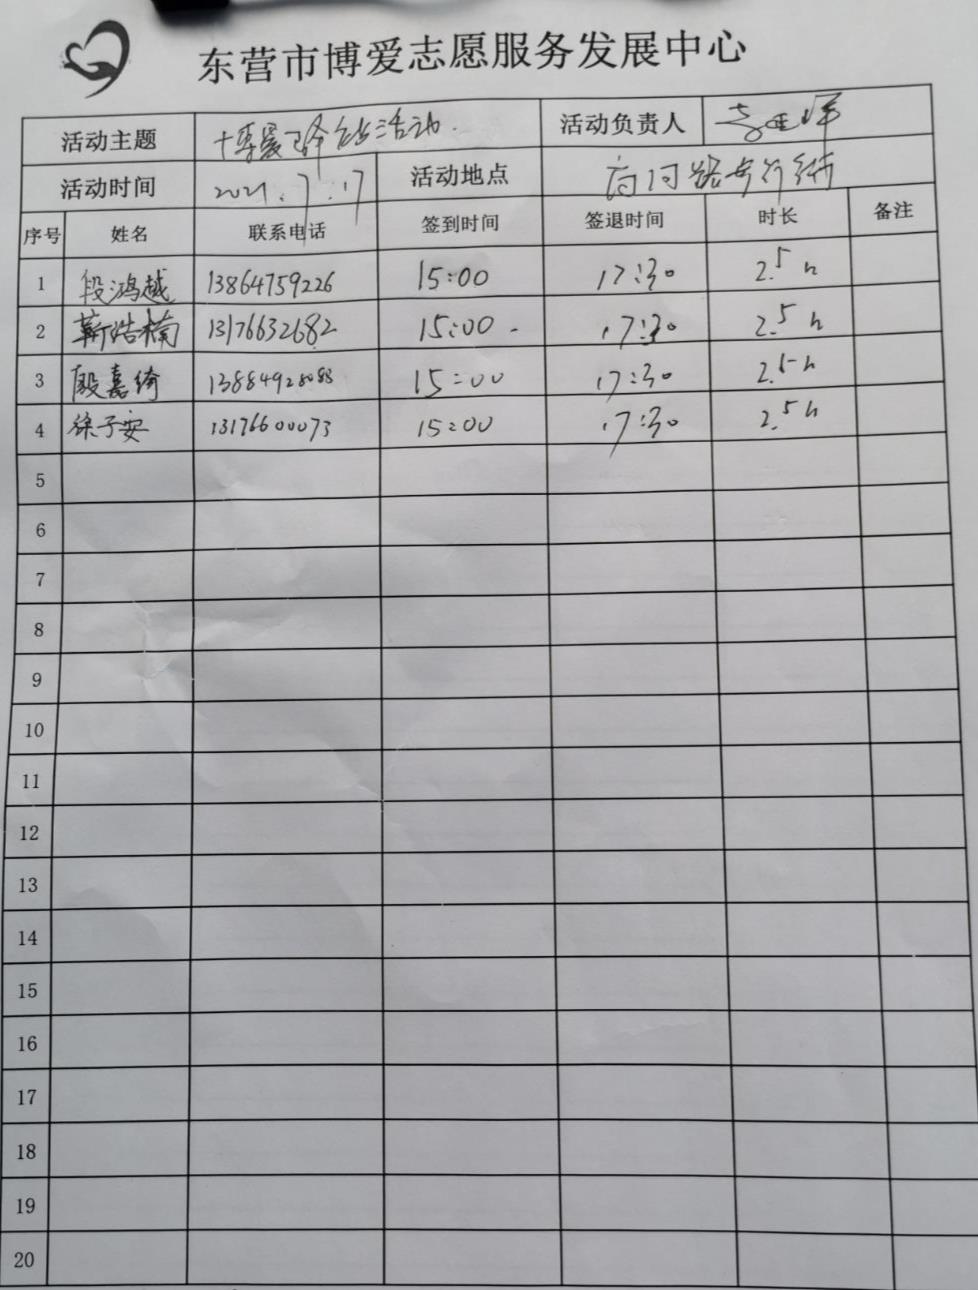 东营市博爱志愿服务发展中心
活动主题 活动 活动负责人
活动时间 2021.7.17 活动地点 步行街
序号 姓名 联系电话 签到时间 签退时间 时长 备注
1 段鸿越 13864759226 15:00 17:30 2.5h
2 靳浩楠 13176632682 15:00 17:30 2.5h
3 殷嘉绮 13884928088 15:00 17:30 2.5h
4 徐子安 13176600073 15:00 17:30 2.5h
5
6
7
8
9
10
11
12
13
14
15
16
17
18
19
20